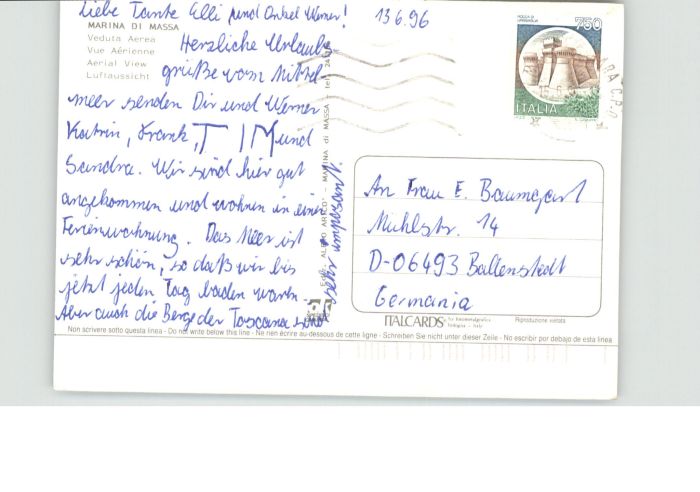 Liebe Tante Elli und Onkel Werner! 13.6.96
MARINA DI MASSA
Veduta Aerea
Vue Aérienne
Aerial View
Luftaussicht
Herzliche Urlaubs
grüße vom Mittel
meer senden Dir und Werner
Katrin, Frank, TIM und
Sandra. Wir sind hier gut
angekommen und wohnen in einer
Ferienwohnung. Das Meer ist
sehr schön, so daß wir bis
jetzt jeden Tag baden waren.
Aber auch die Berge der Toscana sind
sehr imposant.
MARINA DI MASSA
750
ITALIA
An Frau E. Baumgart
Mühlstr. 14
D-06493 Ballenstedt
Germania
ITALCARDS
bologna - italy
Riproduzione vietata
Non scrivere sotto questa linea - Do not write below this line - Ne rien écrire au-dessous de cette ligne - Schreiben Sie nicht unter dieser Zeile - No escribir por debajo de esta linea